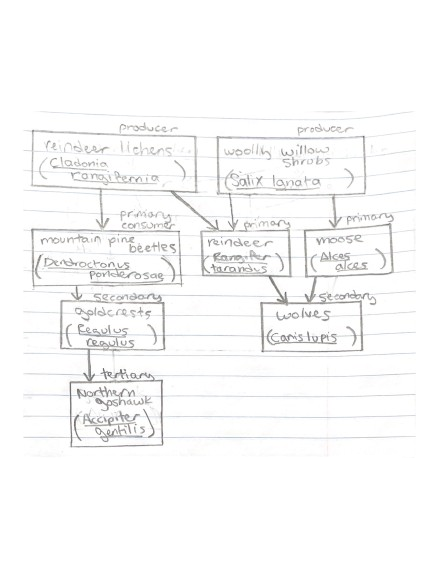 producer
reindeer lichens
(Cladonia
rangiferina)
producer
woolly willow
shrubs
(Salix lanata)
primary
consumer
mountain pine
beetles
(Dendroctonus
ponderosae)
primary
reindeer
(Rangifer
tarandus)
primary
moose
(Alces
alces)
secondary
goldcrests
(Regulus
regulus)
secondary
wolves
(Canis lupis)
tertiary
Northern
goshawk
(Accipiter
gentilis)